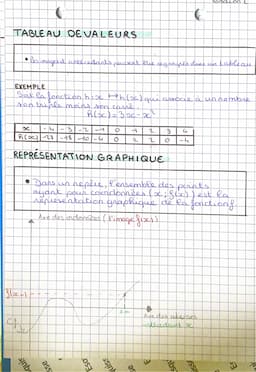 TABLEAU DE VALEURS
• Les images et antécédents peuvent être regroupés dans un tableau
EXEMPLE
Soit la fonction h: x ↦ h(x) qui associe à un nombre
son triple moins son carré.
h(x) = 3x - x²
x -4 -3 -2 -1 0 1 2 3 4
h(x) -28 -18 -10 -4 0 2 2 0 -4
REPRÉSENTATION GRAPHIQUE
• Dans un repère, l'ensemble des points
ayant pour coordonnées (x; f(x)) est la
représentation graphique de la fonction f.
Axe des ordonnées (l'image f(x))
f(x)
Cf
Axe des abscisses
x